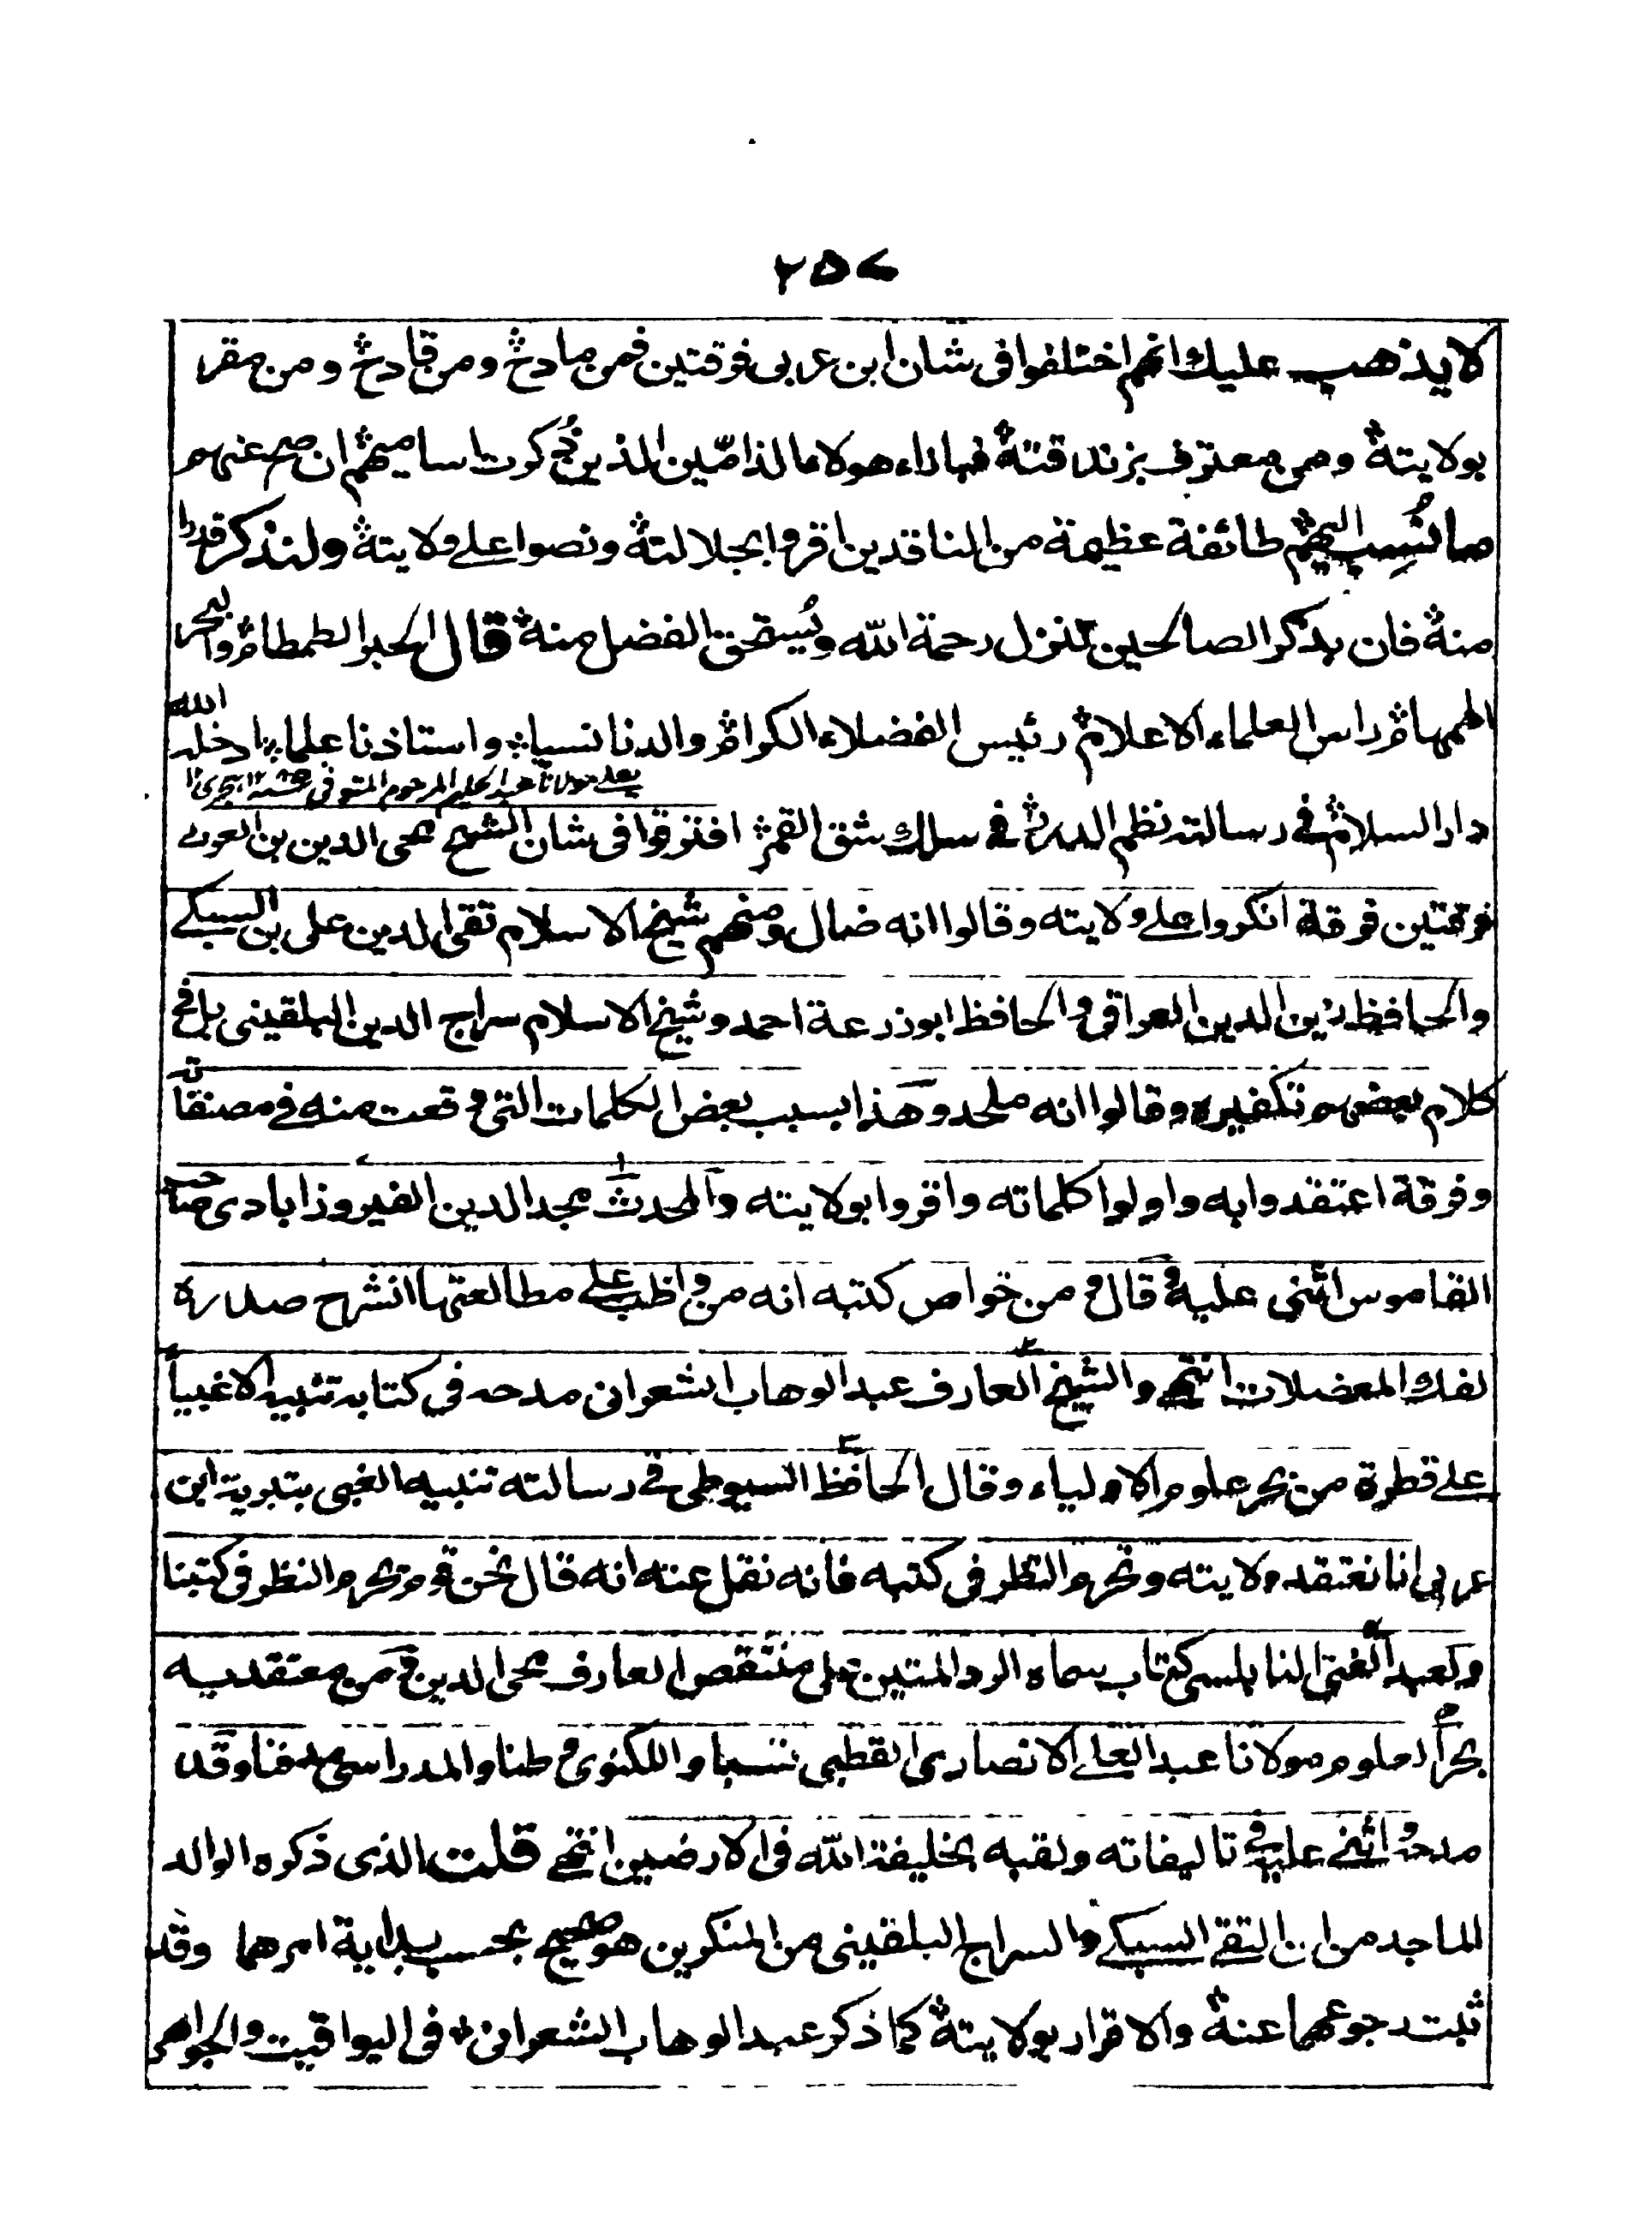 ٢٥٧
لا يذهب عليك انهم اختلفوا فى شان ابن عربى فرقتين فمن مادح ومن قادح ومن مقر
بولايته ومن معترف بزندقته فبازاء هولاء الذامّين الذين ذُكرت اساميهم ان صح عنهم
ما نُسِب اليهم طائفة عظيمة من الناقدين اقروا بجلالته ونصوا على ولايته ولنذكر قدرا
منه فان بذكر الصالحين تنزل رحمة الله ويُستحق الفضل منه قال الحبر الطمطام والبحر
الهمهام راس العلماء الاعلام رئيس الفضلاء الكرام والدنا نسبا واستاذنا علما ادخله الله
يعنى مولانا عبد الحليم المرحوم المتوفى
دار السلام فى رسالته نظم الدرر فى سلك شق القمر افترقوا فى شان الشيخ محى الدين بن العربى
فرقتين فرقة انكروا على ولايته وقالوا انه ضال ومنهم شيخ الاسلام تقى الدين على بن السبكى
والحافظ زين الدين العراقى والحافظ ابو ذرعة احمد وشيخ الاسلام سراج الدين البلقينى بلغ
كلام بعضهم تكفيره وقالوا انه ملحد وهذا بسبب بعض الكلمات التى وقعت منه فى مصنفاته
وفرقة اعتقدوا به واولوا كلماته واقروا بولايته والمحدث مجد الدين الفيروزابادى صاحب
القاموس اثنى عليه وقال ومن خواص كتبه انه من واظب على مطالعتها انشرح صدره
لفك المعضلات انتهى والشيخ العارف عبد الوهاب الشعرانى مدحه فى كتابه تنبيه الاغبياء
على قطرة من بحر علوم الاولياء وقال الحافظ السيوطى فى رسالته تنبيه الغبى بتبرية ابن
عربى انا نعتقد ولايته ونحرم النظر فى كتبه فانه نقل عنه انه قال نحن قوم نحرم النظر فى كتبنا
ولعبد الغنى النابلسى كتاب سماه الرد المتين على منتقص العارف محى الدين ومن معتقديه
بحر العلوم مولانا عبد العلى الانصارى القطبى نسبا واللكنوى وطنا والمدراسى مدفنا وقد
مدحه واثنى عليه فى تاليفاته ولقبه بخليفة الله فى الارضين انتهى قلت الذى ذكره الوالد
الماجد من ان التقى السبكى والسراج البلقينى من المنكرين هو صحيح بحسب بداية امرهما وقد
ثبت رجوعهما عنه والاقرار بولايته كما ذكر عبد الوهاب الشعرانى فى اليواقيت والجواهر